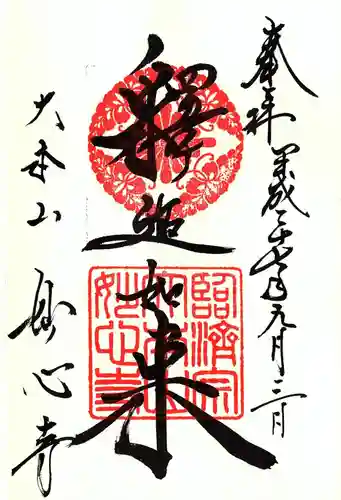 奉拝 平成二十七年九月三日
釋迦如来
大本山 妙心寺
臨済宗
妙心寺